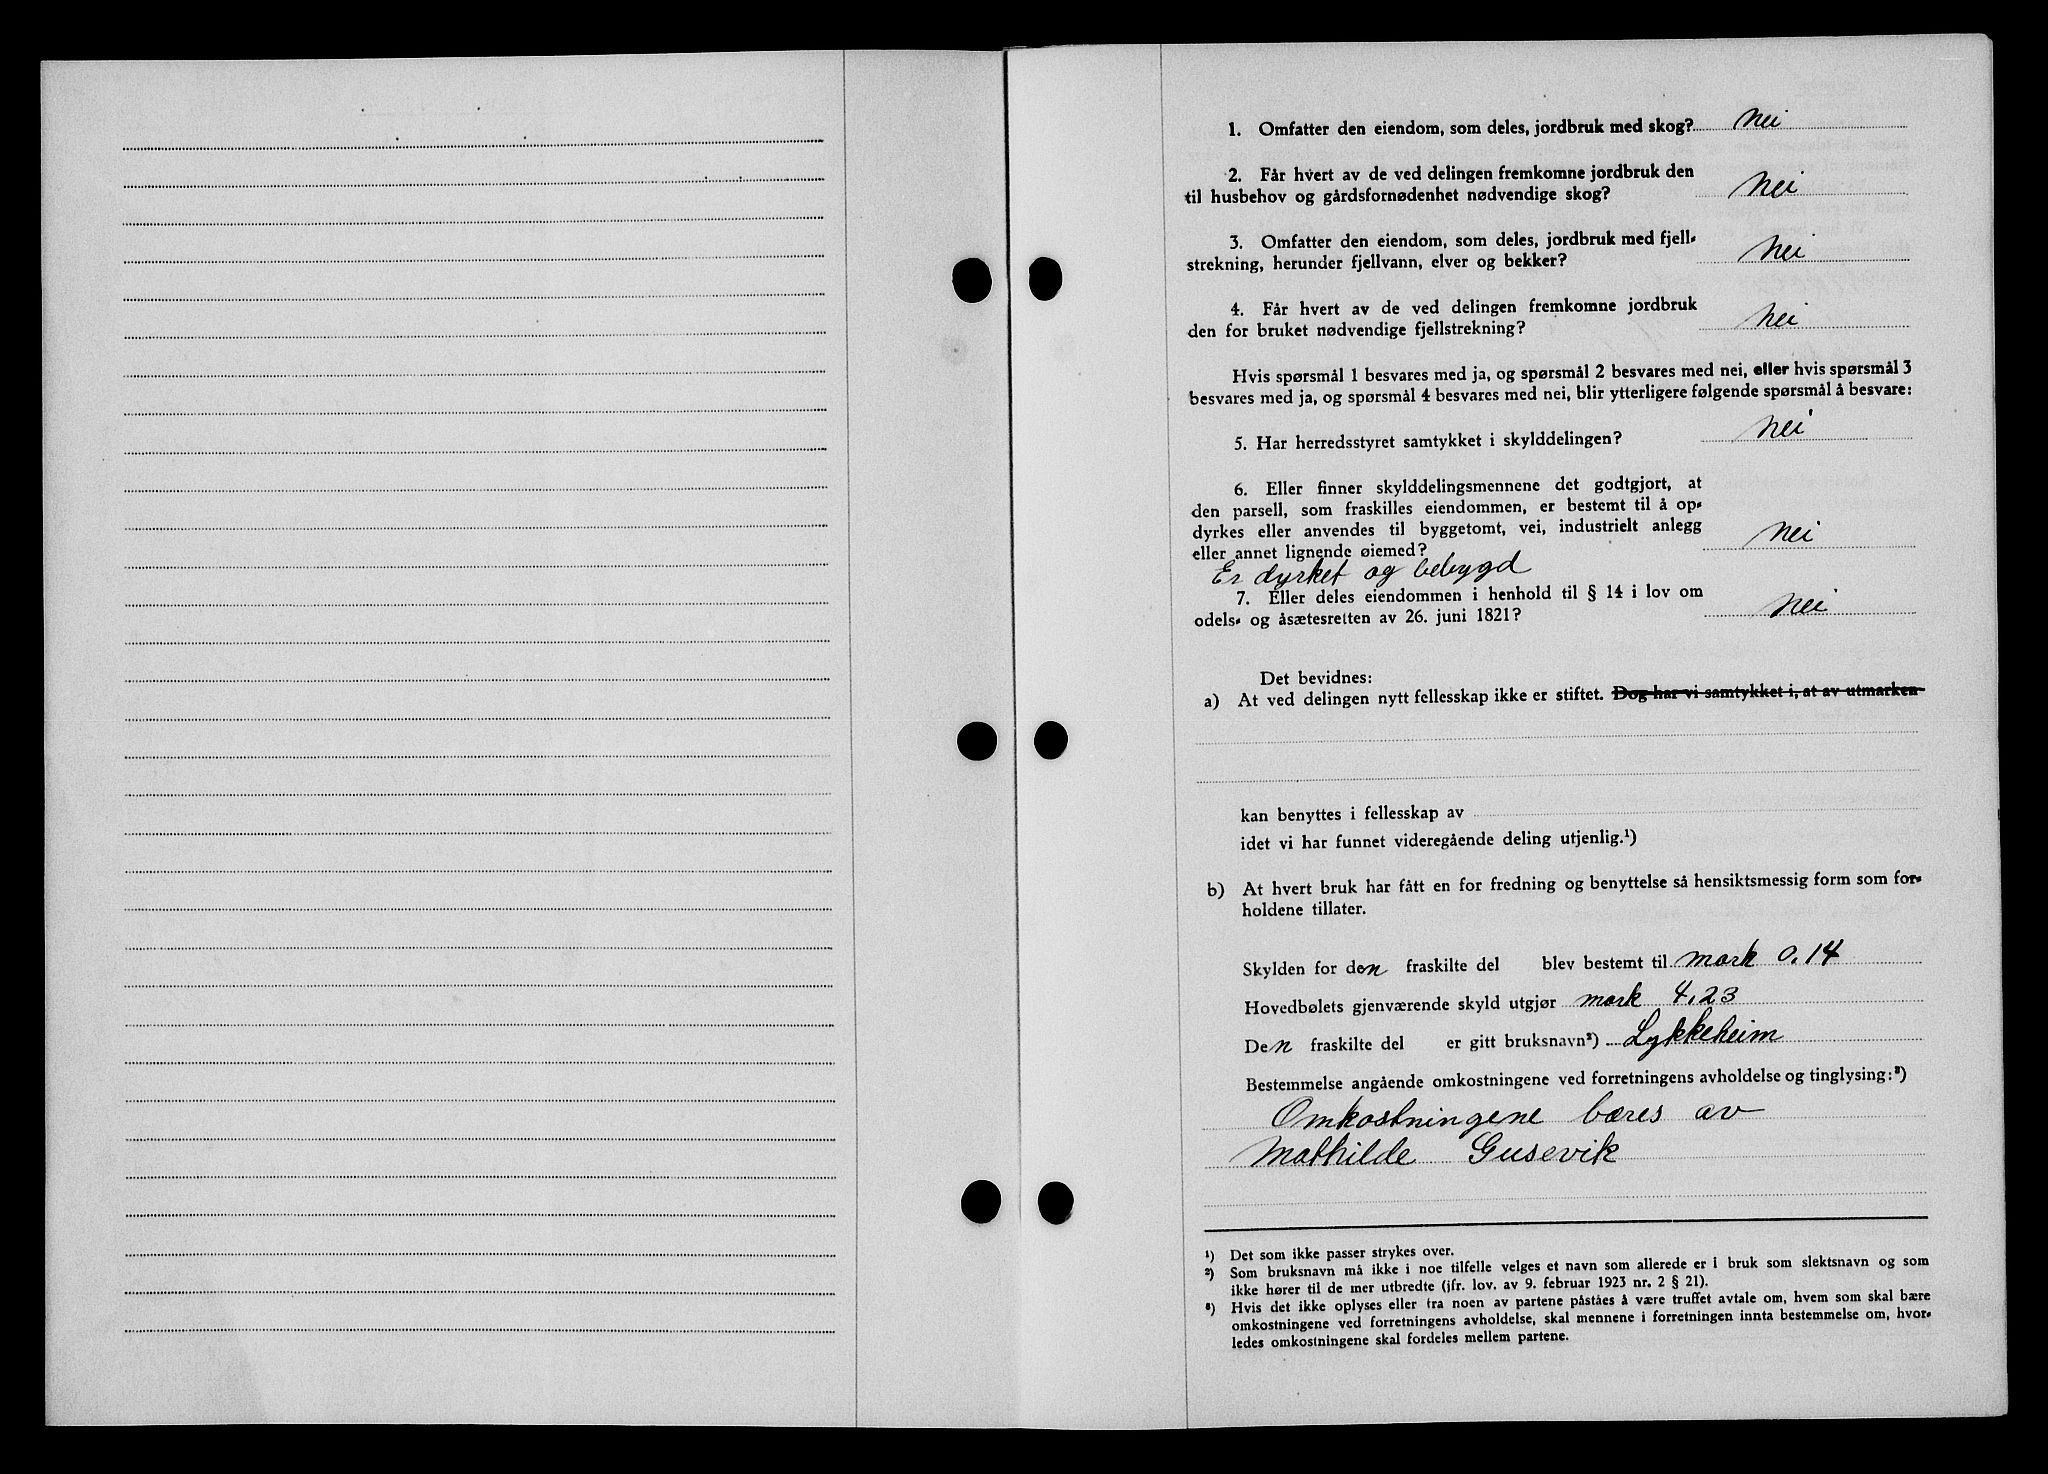 1. Omfatter den eiendom, som deles, jordbruk med skog? Nei
2. Får hvert av de ved delingen fremkomne jordbruk den
til husbehov og gårdsfornødenhet nødvendige skog? Nei
3. Omfatter den eiendom, som deles, jordbruk med fjell-
strekning, herunder fjellvann, elver og bekker? Nei
4. Får hvert av de ved delingen fremkomne jordbruk
den for bruket nødvendige fjellstrekning? Nei
Hvis spørsmål 1 besvares med ja, og spørsmål 2 besvares med nei, eller hvis spørsmål 3
besvares med ja, og spørsmål 4 besvares med nei, blir ytterligere følgende spørsmål å besvare:
5. Har herredsstyret samtykket i skylddelingen? Nei
6. Eller finner skylddelingsmennene det godtgjort, at
den parsell, som fraskilles eiendommen, er bestemt til å op-
dyrkes eller anvendes til byggetomt, vei, industrielt anlegg
eller annet lignende øiemed? Nei
Er dyrket og bebygd
7. Eller deles eiendommen i henhold til § 14 i lov om
odels- og åsætesretten av 26. juni 1821? Nei
Det bevidnes:
a) At ved delingen nytt fellesskap ikke er stiftet. Dog har vi samtykket i, at av utmarken
kan benyttes i fellesskap av
idet vi har funnet videregående deling utjenlig.¹)
b) At hvert bruk har fått en for fredning og benyttelse så hensiktsmessig form som for-
holdene tillater.
Skylden for den fraskilte del blev bestemt til mark 0.14
Hovedbølets gjenværende skyld utgjør mark 4.23
Den fraskilte del er gitt bruksnavn²) Lykkeheim
Bestemmelse angående omkostningene ved forretningens avholdelse og tinglysing:³)
Omkostningene bæres av
Mathilde Gusevik
¹) Det som ikke passer strykes over.
²) Som bruksnavn må ikke i noe tilfelle velges et navn som allerede er i bruk som slektsnavn og som
ikke hører til de mer utbredte (jfr. lov. av 9. februar 1923 nr. 2 § 21).
³) Hvis det ikke oplyses eller fra noen av partene påståes å være truffet avtale om, hvem som skal bære
omkostningene ved forretningens avholdelse, skal mennene i forretningen innta bestemmelse om, hvor-
ledes omkostningene skal fordeles mellem partene.